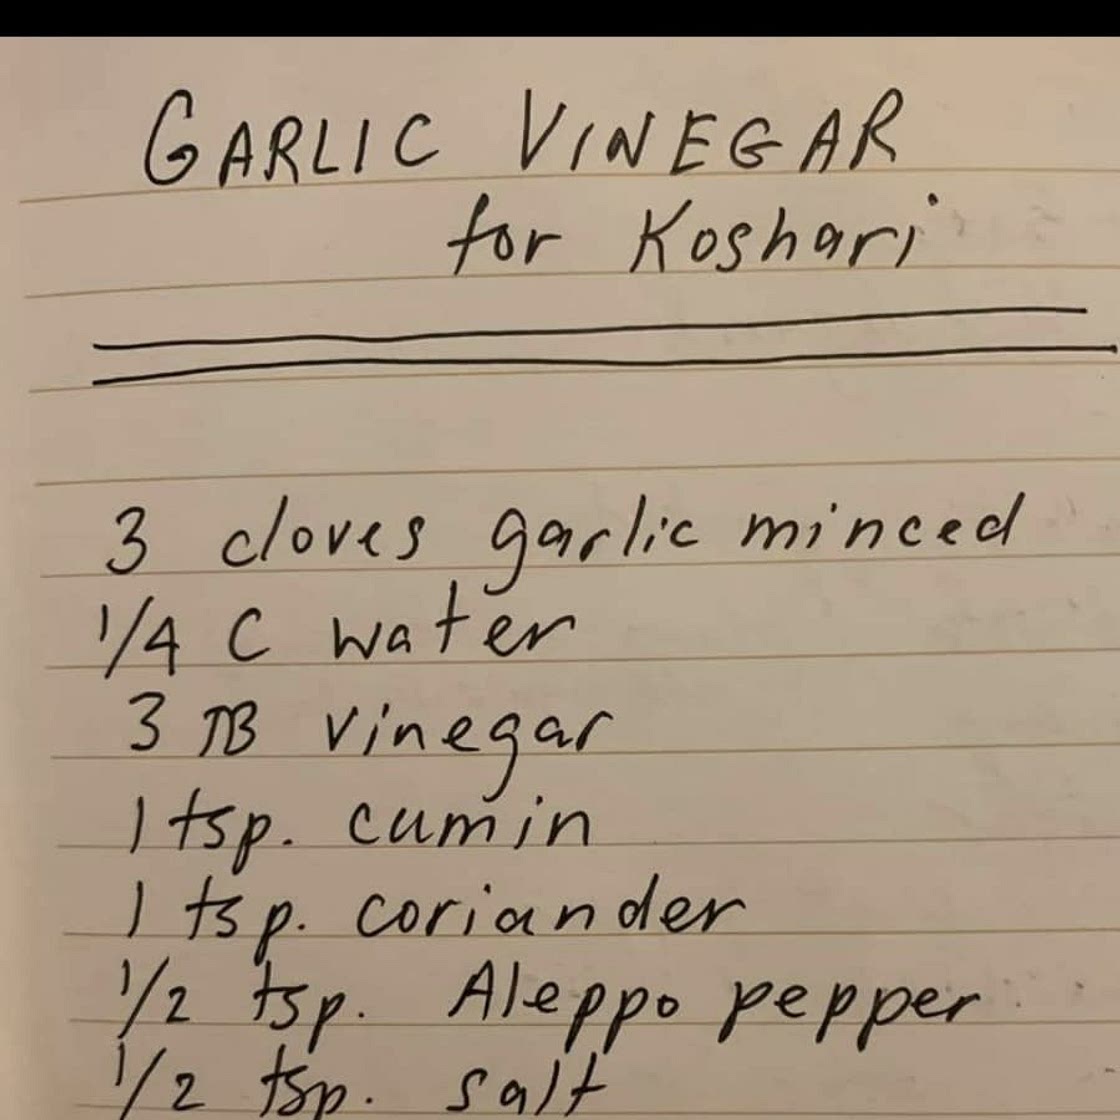 GARLIC VINEGAR
for Koshari
3 cloves garlic minced
1/4 C water
3 TB vinegar
1 tsp. cumin
1 tsp. coriander
1/2 tsp. Aleppo pepper
1/2 tsp. salt